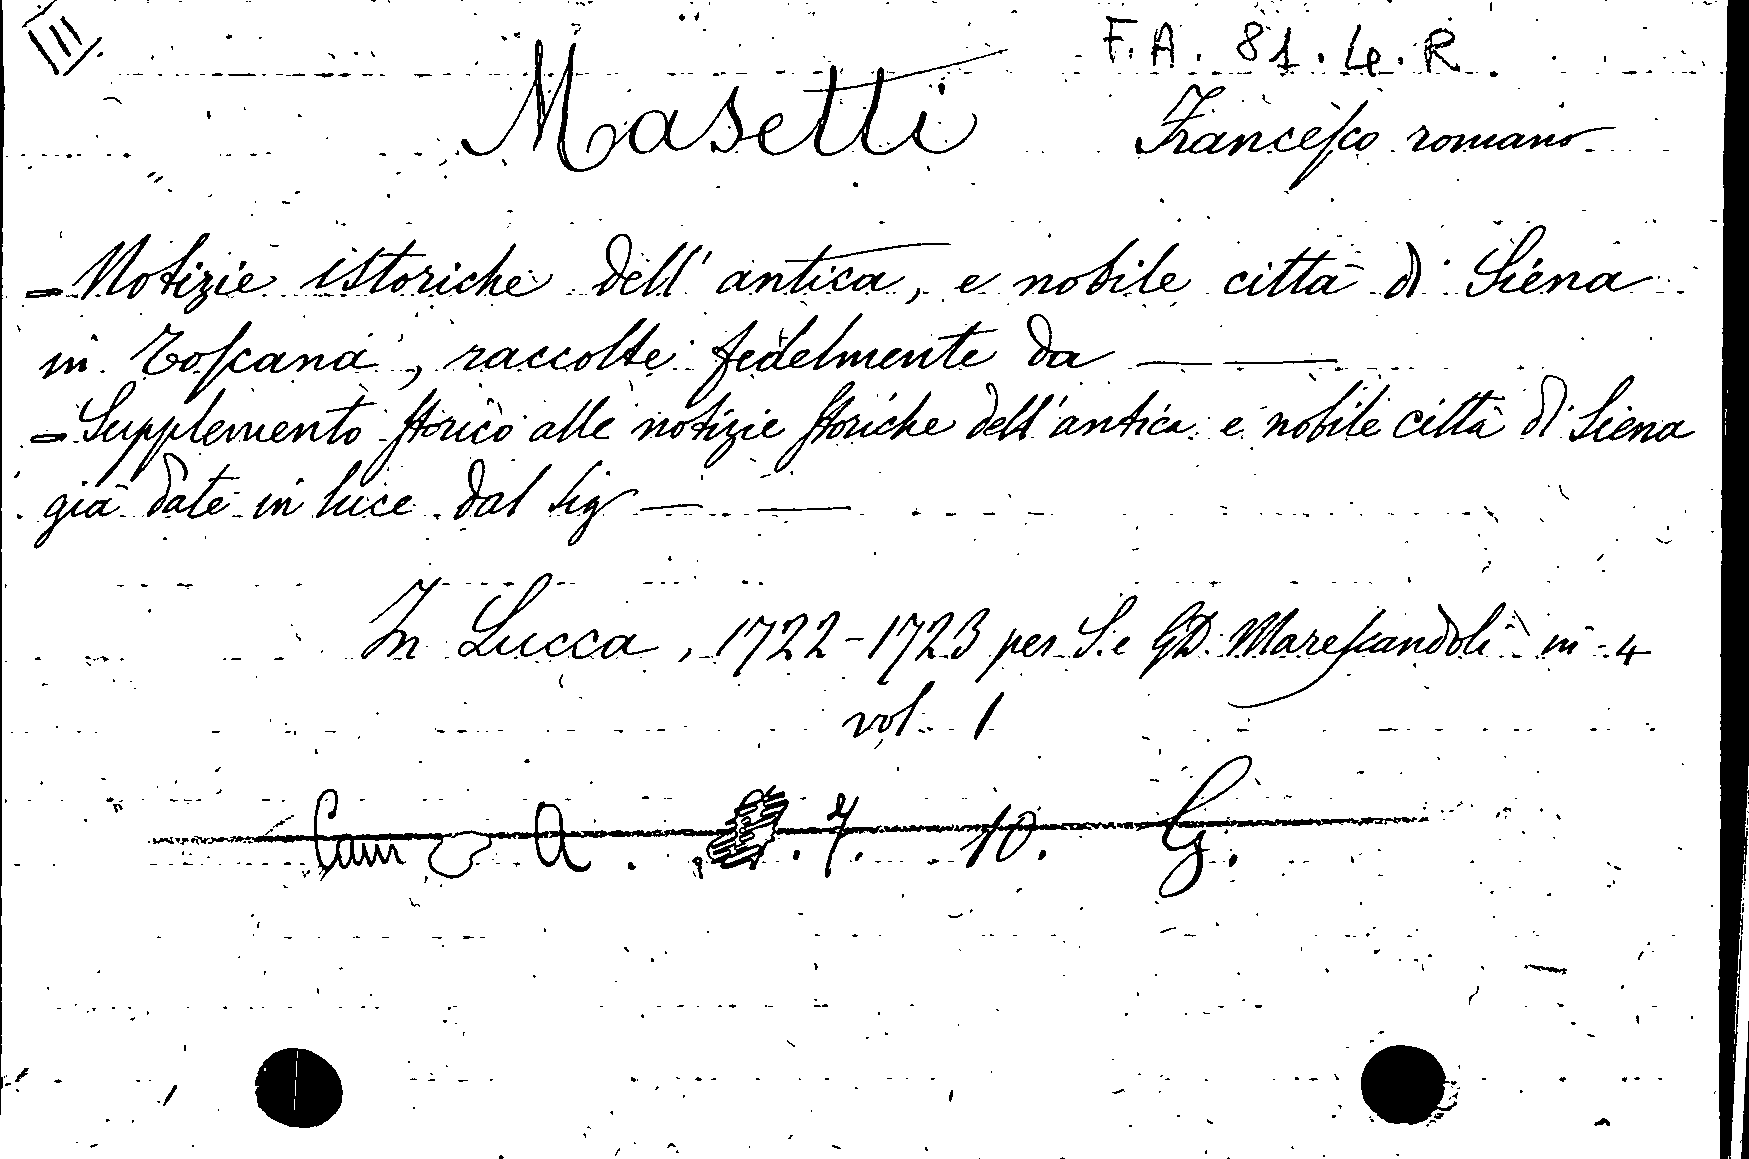 III
F. A. 81. 4. R.
Masetti Francesco romano
- Notizie istoriche dell' antica, e nobile città di Siena
in Toscana, raccolte fedelmente da — —
- Supplemento storico alle notizie storiche dell' antica e nobile città di Siena
già date in luce dal sig — —
In Lucca, 1722-1723 per S. e GD. Marescandoli in 4
vol. 1
Cam A. 7. 10. G.